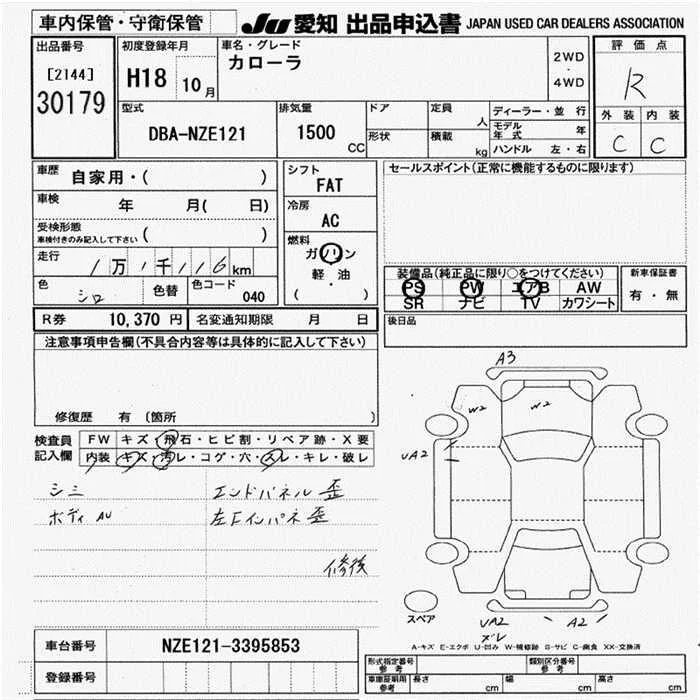 車内保管・守衛保管
JU 愛知 出品申込書 JAPAN USED CAR DEALERS ASSOCIATION
出品番号
[2144]
30179
初度登録年月
H18 10月
車名・グレード
カローラ
2WD
・
4WD
評価点
R
外装 内装
C C
型式
DBA-NZE121
排気量
1500
CC
ドア
形状
定員
人
積載
kg
ディーラー・並行
モデル年式 年
ハンドル 左・右
車歴
自家用・( )
車検
年 月( 日)
受検形態
車検付きのみ記入して下さい ( )
走行
1万1千116km
色
シロ
色替
色コード
040
シフト
FAT
冷房
AC
燃料
ガソリン
軽・油
( )
セールスポイント(正常に機能するものに限ります)
装備品(純正品に限り○をつけてください)
PS PW エアB AW
SR ナビ TV カワシート
新車保証書
有・無
後日品
R券 10,370円 名変通知期限 月 日
注意事項申告欄(不具合内容等は具体的に記入して下さい)
修復歴 有 〔箇所 〕
検査員
記入欄
FW キズ・飛石・ヒビ割・リペア跡・X要
内装 キズ・汚レ・コゲ・穴・スレ・キレ・破レ
シミ
ボディ AU
エンドパネル 歪
左Fインパネ歪
修後
A3
W2
W2
UA2
スペア
UA2
ズレ
A2
A-キズ E-エクボ U-凹み W-補修跡 S-サビ C-腐食 XX-交換済
車台番号
NZE121-3395853
登録番号
形式指定番号
参考
類別区分番号
参考
車庫証明用
参考
長さ cm
幅 cm
高さ cm